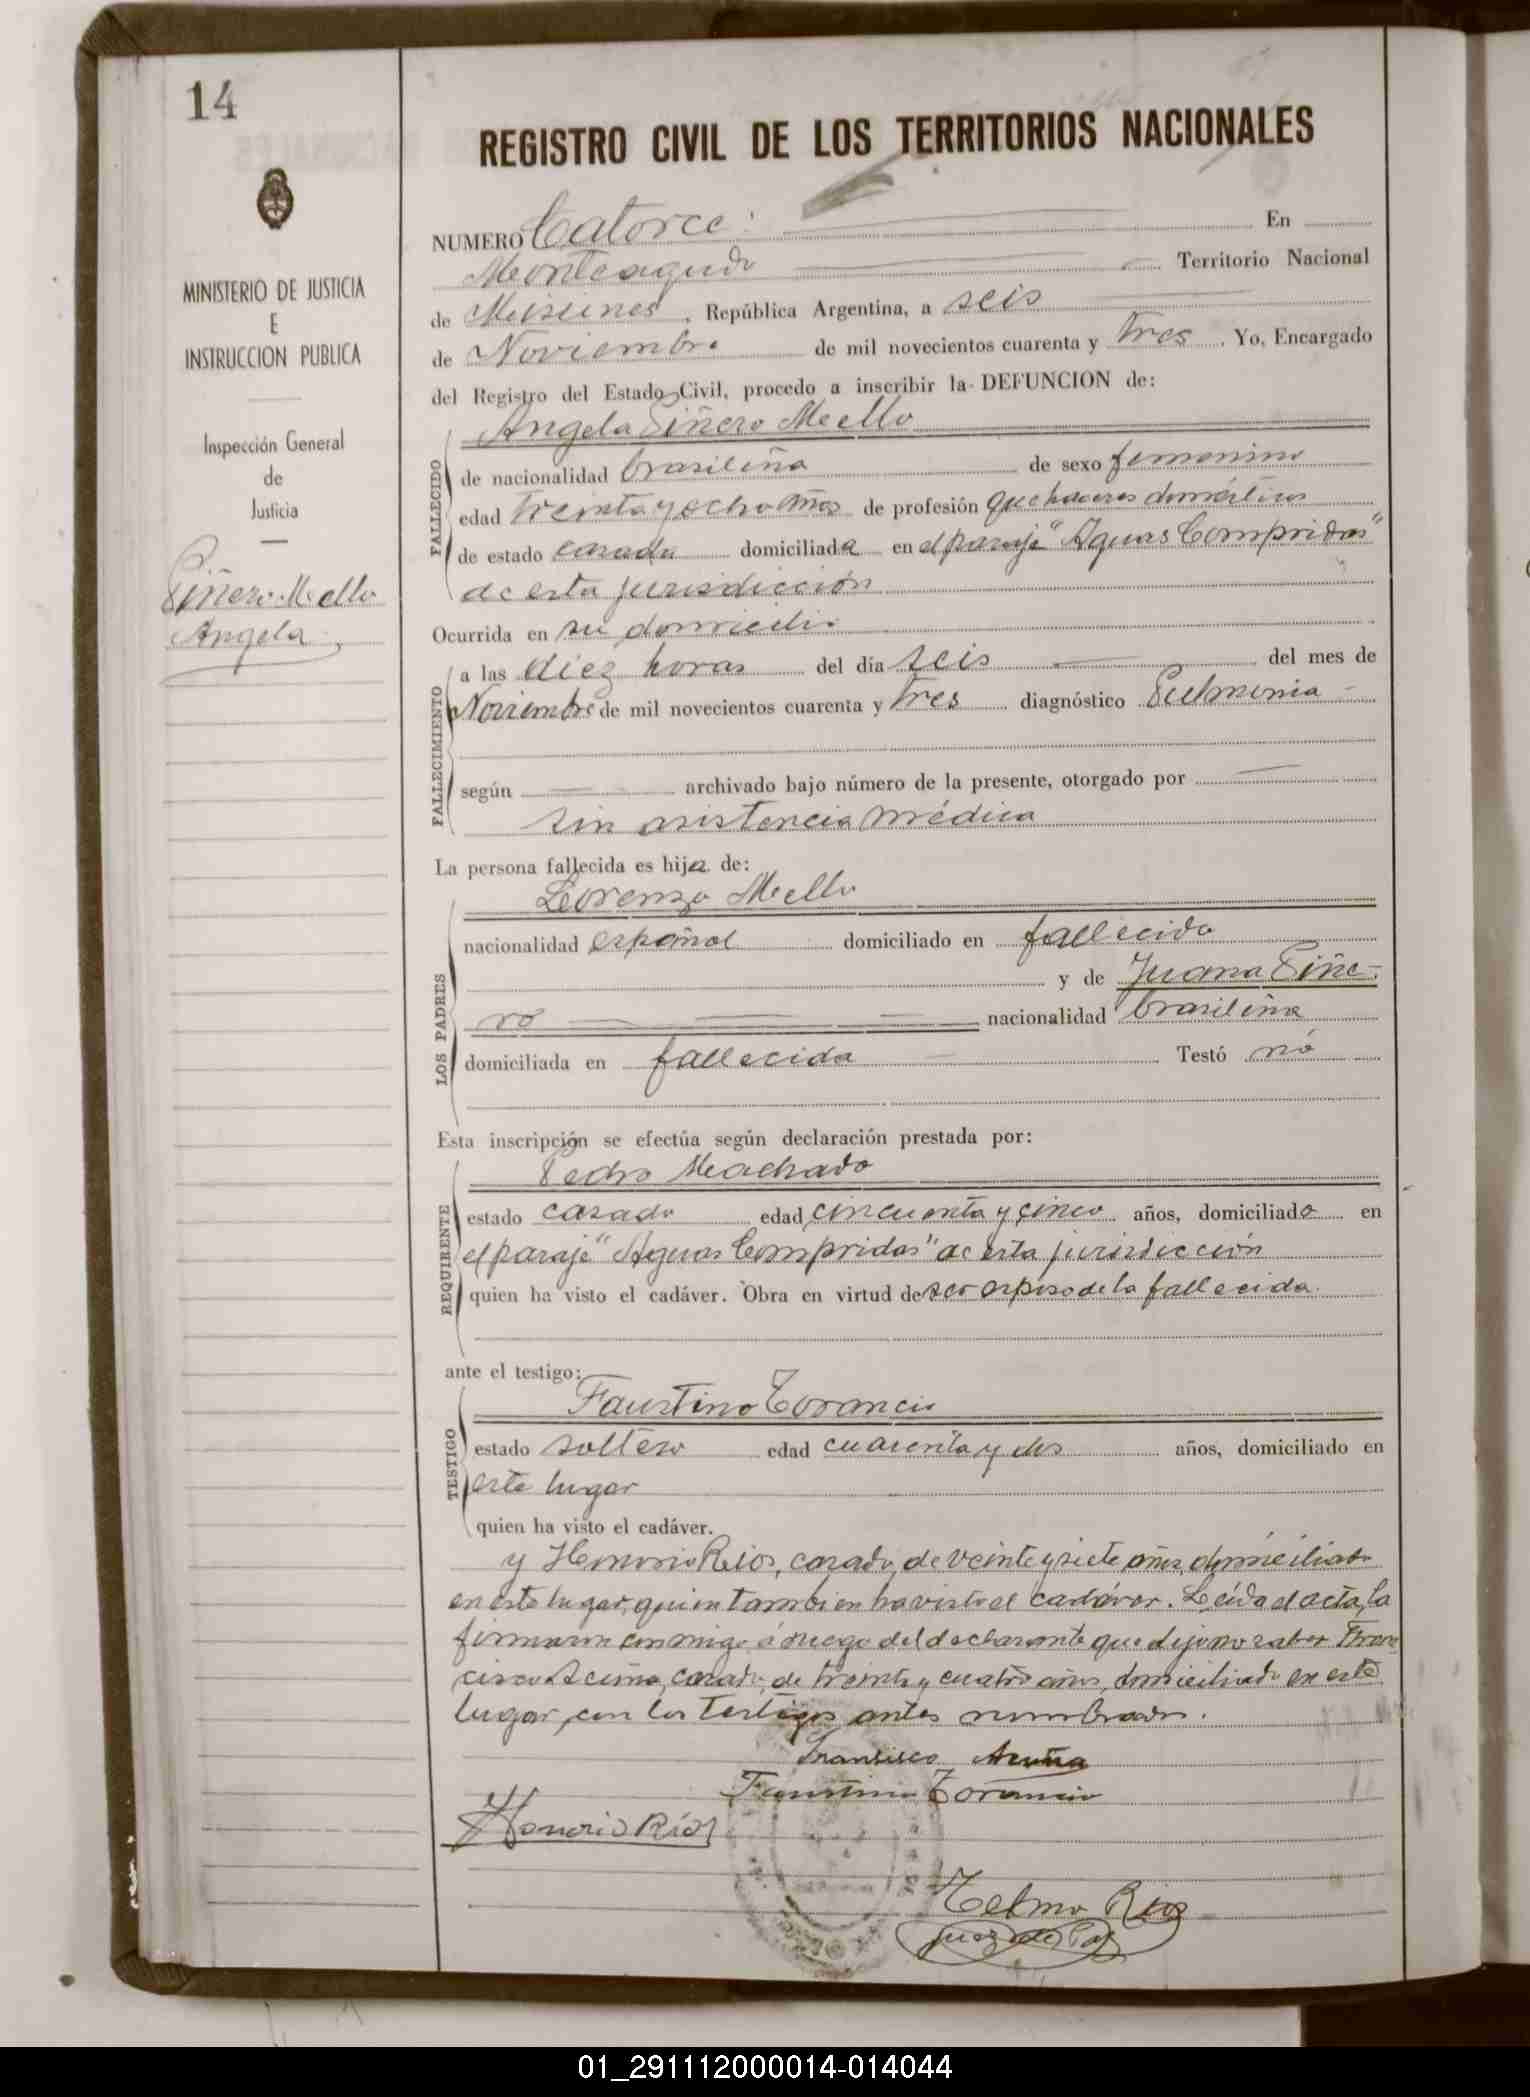 14
REGISTRO CIVIL DE LOS TERRITORIOS NACIONALES
MINISTERIO DE JUSTICIA
E
INSTRUCCION PUBLICA
Inspección General
de
Justicia
Piñero Mello
Angela
NUMERO Catorce: En
Monteagudo Territorio Nacional
de Misiones, República Argentina, a seis
de Noviembre de mil novecientos cuarenta y tres. Yo, Encargado
del Registro del Estado Civil, procedo a inscribir la DEFUNCION de:
Angela Piñero Mello
FALLECIDO
de nacionalidad brasileña de sexo femenino
edad treinta y ocho años de profesión quehaceres domésticos
de estado casada domiciliada en el paraje "Aguas Compridas"
de esta jurisdicción
Ocurrida en su domicilio
FALLECIMIENTO
a las diez horas del día seis del mes de
Noviembre de mil novecientos cuarenta y tres diagnóstico Pulmonia
según archivado bajo número de la presente, otorgado por
sin asistencia médica
La persona fallecida es hija de:
LOS PADRES
Lorenzo Mello
nacionalidad español domiciliado en fallecido
y de Juana Piñe-
ro nacionalidad brasileña
domiciliada en fallecida Testó nó
Esta inscripción se efectúa según declaración prestada por:
REQUIRENTE
Pedro Machado
estado casado edad cincuenta y cinco años, domiciliado en
el paraje "Aguas Compridas" de esta jurisdicción
quien ha visto el cadáver. Obra en virtud de ser esposo de la fallecida.
ante el testigo:
TESTIGO
Faustino Torancio
estado soltero edad cuarenta y dos años, domiciliado en
este lugar
quien ha visto el cadáver.
y Honorio Rios, casado, de veinte y siete años, domiciliado
en este lugar, quien tambien ha visto el cadáver. Leída el acta, la
firmaron conmigo á ruego del declarante que dijo no saber Fran
cisco Acuña, casado, de treinta y cuatro años, domiciliado en este
lugar, con los testigos antes nombrados.
Fransisco Acuña
Faustino Torancio
Honorio Ríos
Telmo Rios
Juez de Paz
01_291112000014-014044